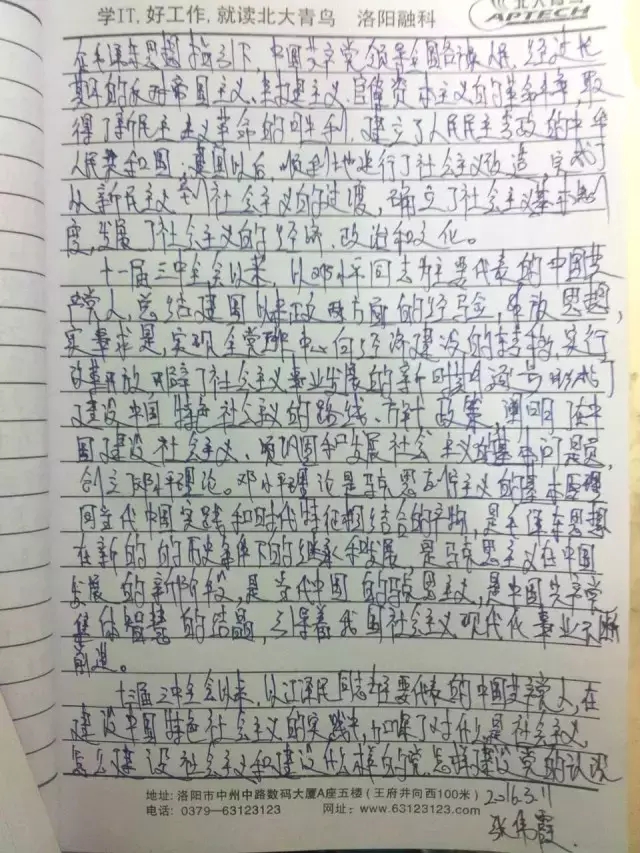 学IT,好工作,就读北大青鸟 洛阳融科
北大青鸟
APTECH
在毛泽东思想指引下,中国共产党领导全国各族人民,经过长
期的反对帝国主义、封建主义、官僚资本主义的革命斗争,取
得了新民主主义革命的胜利,建立了人民民主专政的中华
人民共和国;建国以后,顺利地进行了社会主义改造,完成了
从新民主义到社会主义的过渡,确立了社会主义基本制
度,发展了社会主义的经济、政治和文化。
十一届三中全会以来,以邓小平同志为主要代表的中国共
产党人,总结建国以来正反两方面的经验,解放思想,
实事求是,实现全党工作中心向经济建设的转移,实行
改革开放,开辟了社会主义事业发展的新时期,逐步形成了
建设中国特色社会主义的路线、方针、政策,阐明了在中
国建设社会主义、巩固和发展社会主义的基本问题,
创立了邓小平理论。邓小平理论是马克思列宁主义的基本原理
同当代中国实践和时代特征相结合的产物,是毛泽东思想
在新的的历史条件下的继承和发展,是马克思主义在中国
发展的新阶段,是当代中国的马克思主义,是中国共产党
集体智慧的结晶,引导着我国社会主义现代化事业不断
前进。
十三届三中全会以来,以江泽民同志为主要代表的中国共产党人,在
建设中国特色社会主义的实践中,加深了对什么是社会主义、
怎么建设社会主义和建设什么样的党、怎样建设党的认识
地址:洛阳市中州中路数码大厦A座五楼(王府井向西100米)
电话:0379—63123123 网址:www.63123123.com
2016.3.11
张伟霞